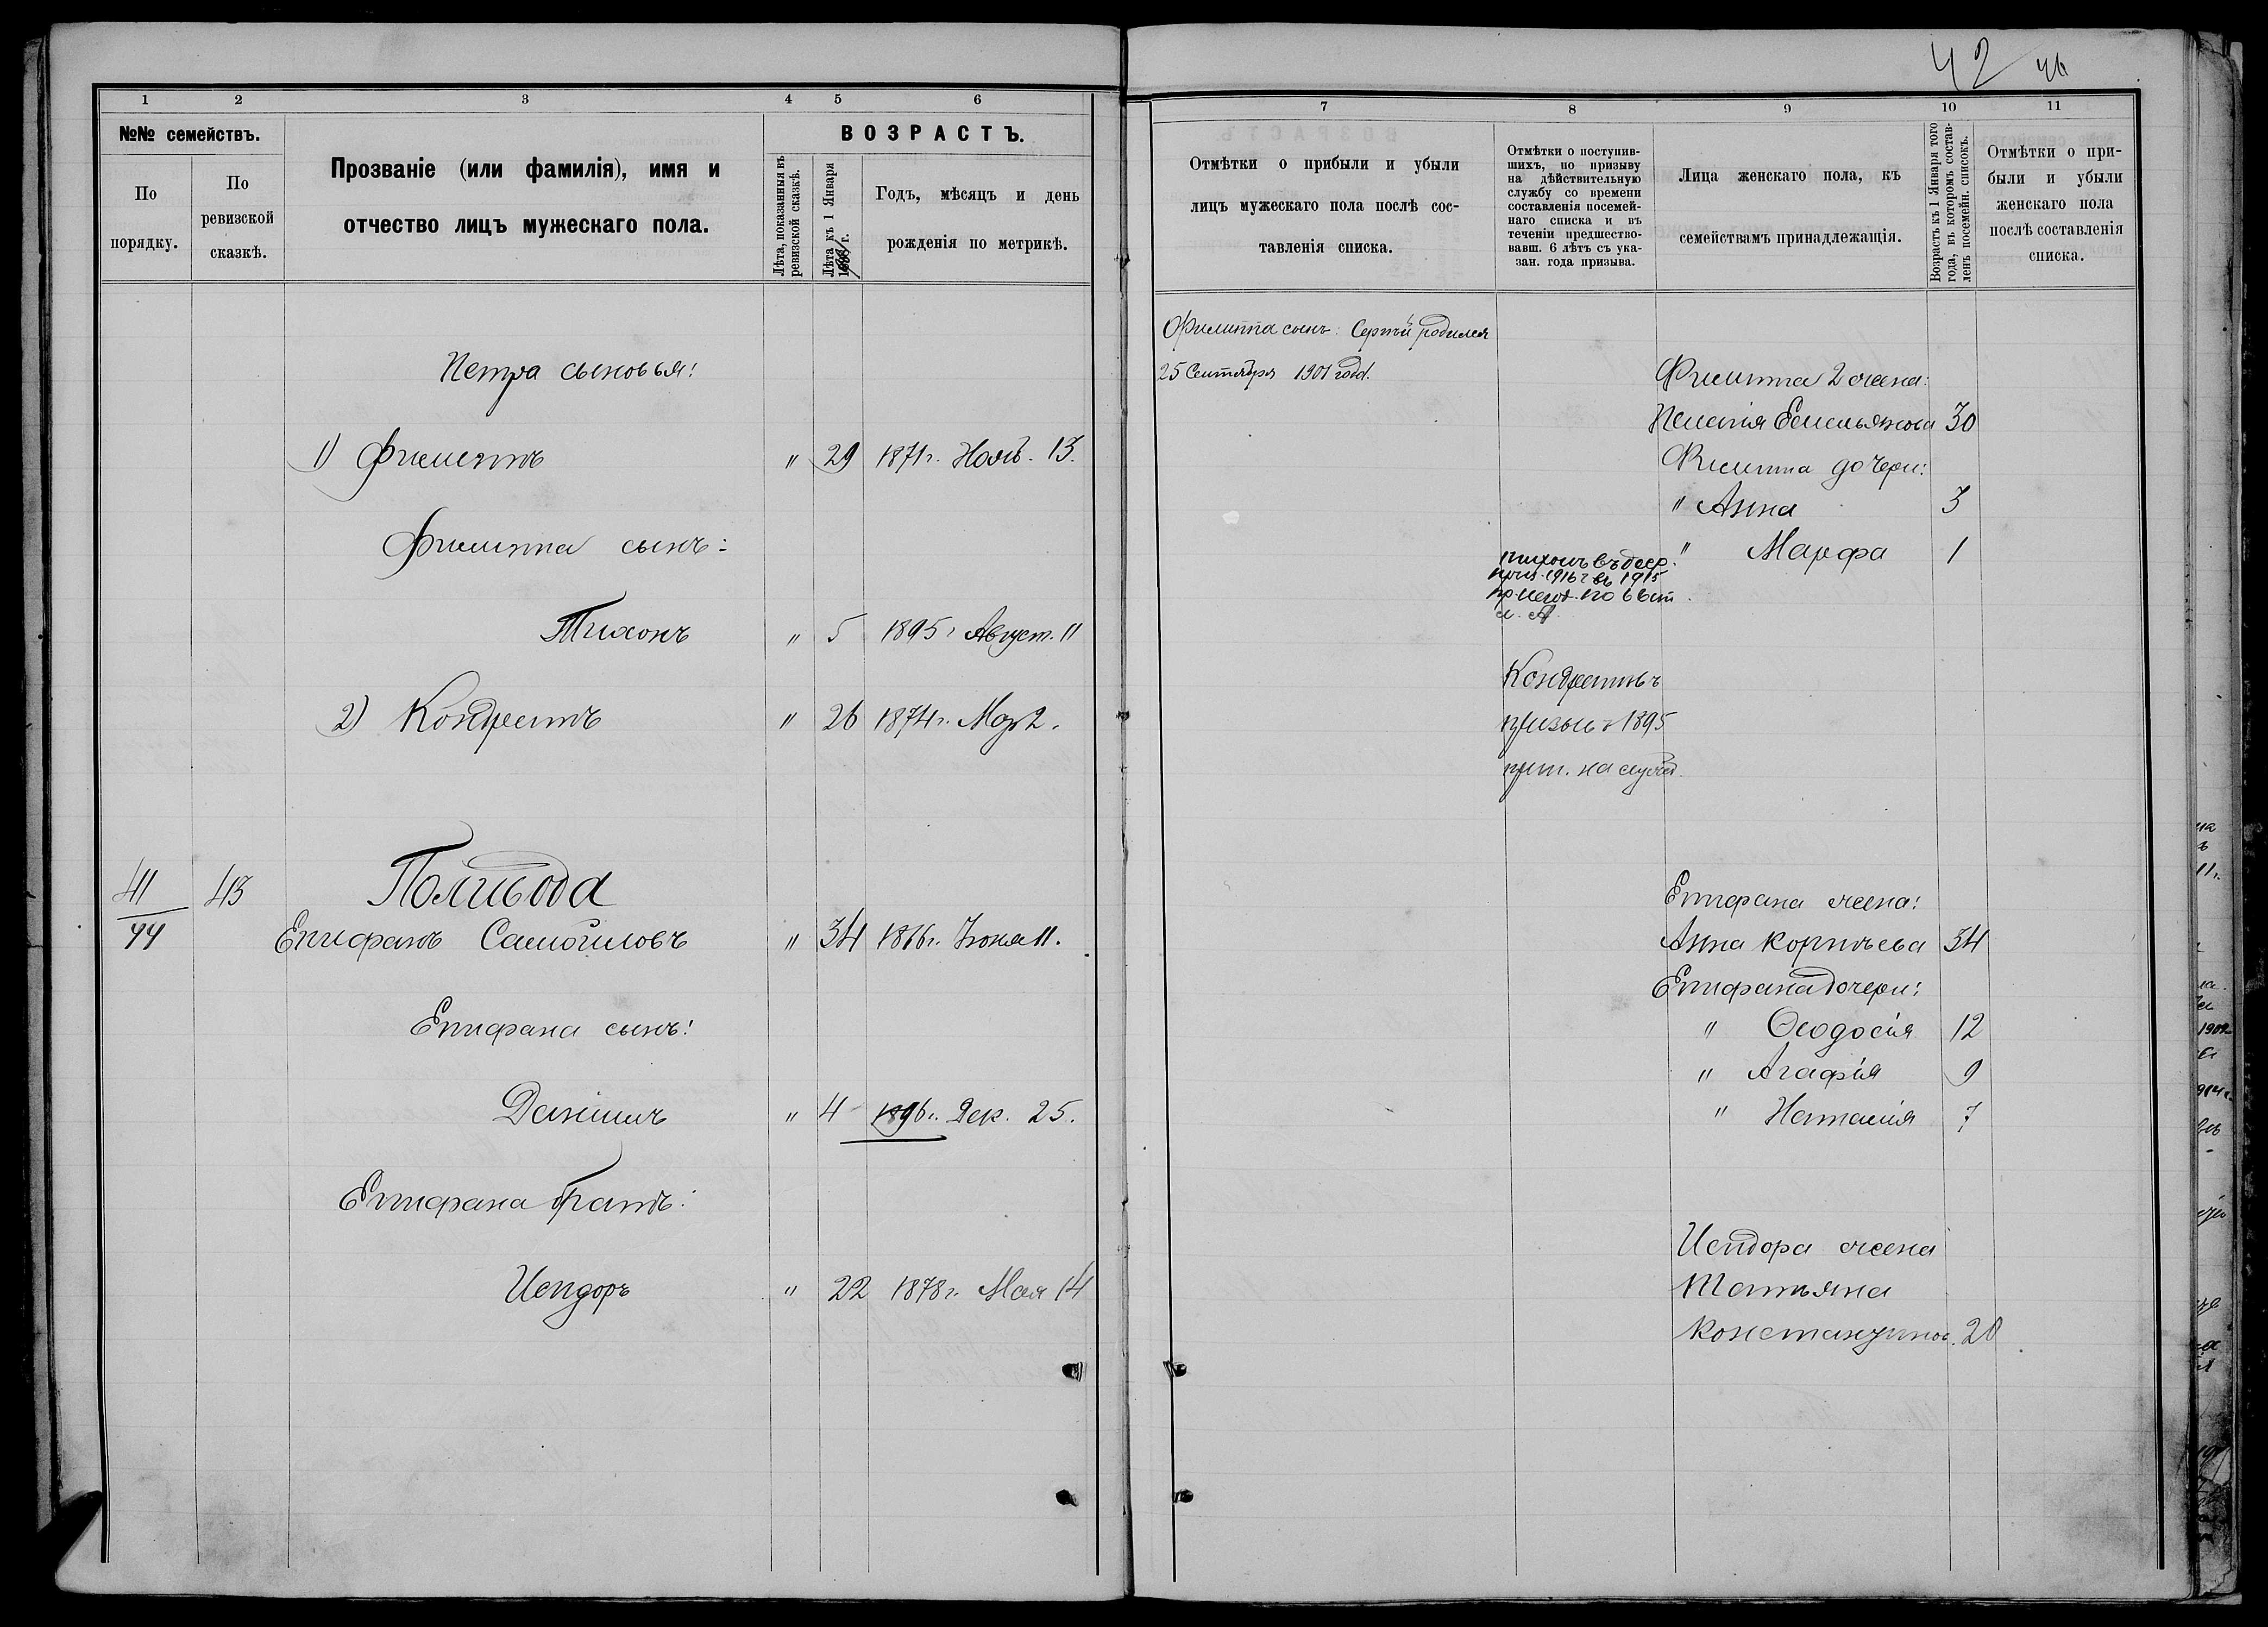 42 46
1 2 3 4 5 6
№№ семействъ.
По порядку.
По ревизской сказкѣ.
Прозваніе (или фамилія), имя и
отчество лицъ мужескаго пола.
ВОЗРАСТЪ.
Лѣта, показанныя въ
ревизской сказкѣ.
Лѣта къ 1 Января
г.
Годъ, мѣсяцъ и день
рожденія по метрикѣ.
Петра сыновья:
1) Филиппъ " 29 1871 г. Нояб. 13.
Филиппа сынъ:
Тихонъ " 5 1895 г. Август. 11
2) Кондратъ " 26 1874 г. Мар 2.
41 43 Поливода
44 Епифанъ Самойловъ " 34 1866 г. Іюня 11.
Епифана сынъ:
Даніилъ " 4 1896 г. Дек. 25.
Епифана братъ:
Исидоръ " 22 1878 г. Мая 14
7 8 9 10 11
Отмѣтки о прибыли и убыли
лицъ мужескаго пола послѣ сос-
тавленія списка.
Отмѣтки о поступив-
шихъ, по призыву
на дѣйствительную
службу со времени
составленія посемей-
наго списка и въ
теченіи предшество-
вавш. 6 лѣтъ съ ука-
зан. года призыва.
Лица женскаго пола, къ
семействамъ принадлежащія.
Возрастъ къ 1 Января того
года, въ которомъ состав-
ленъ посемейн. списокъ.
Отмѣтки о при-
были и убыли
женскаго пола
послѣ составленія
списка.
Филиппа сынъ: Сергѣй родился
25 Сентября 1901 года.
Филиппа 2 жена:
Пелагія Емельянова 30
Филиппа дочери:
" Анна 3
" Марфа 1
Тихонъ въ
1916 г въ 1915
по 66 ст
Кондратъ
призыв 1895
прин. на служб.
Епифана жена:
Анна Корнѣева 34
Епифана дочери:
" Ѳеодосія 12
" Агафія 9
" Наталія 7
Исидора жена
Татьяна
Константинов. 20